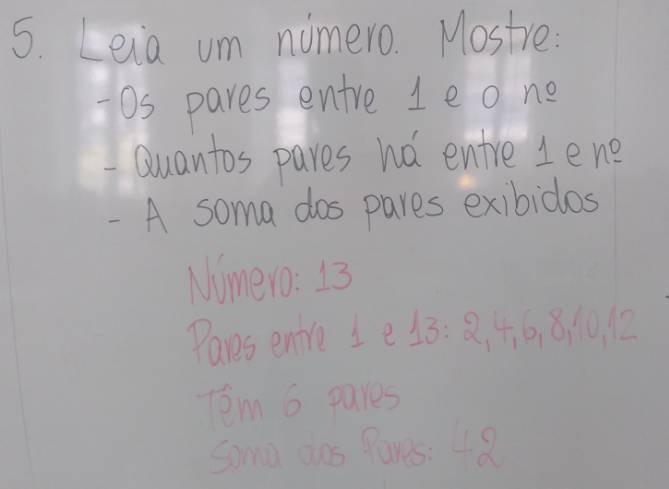 5. Leia um número. Mostre:
- Os pares entre 1 e o nº
- Quantos pares há entre 1 e nº
- A soma dos pares exibidos
Número: 13
Pares entre 1 e 13: 2, 4, 6, 8, 10, 12
Têm 6 pares
Soma dos Pares: 42